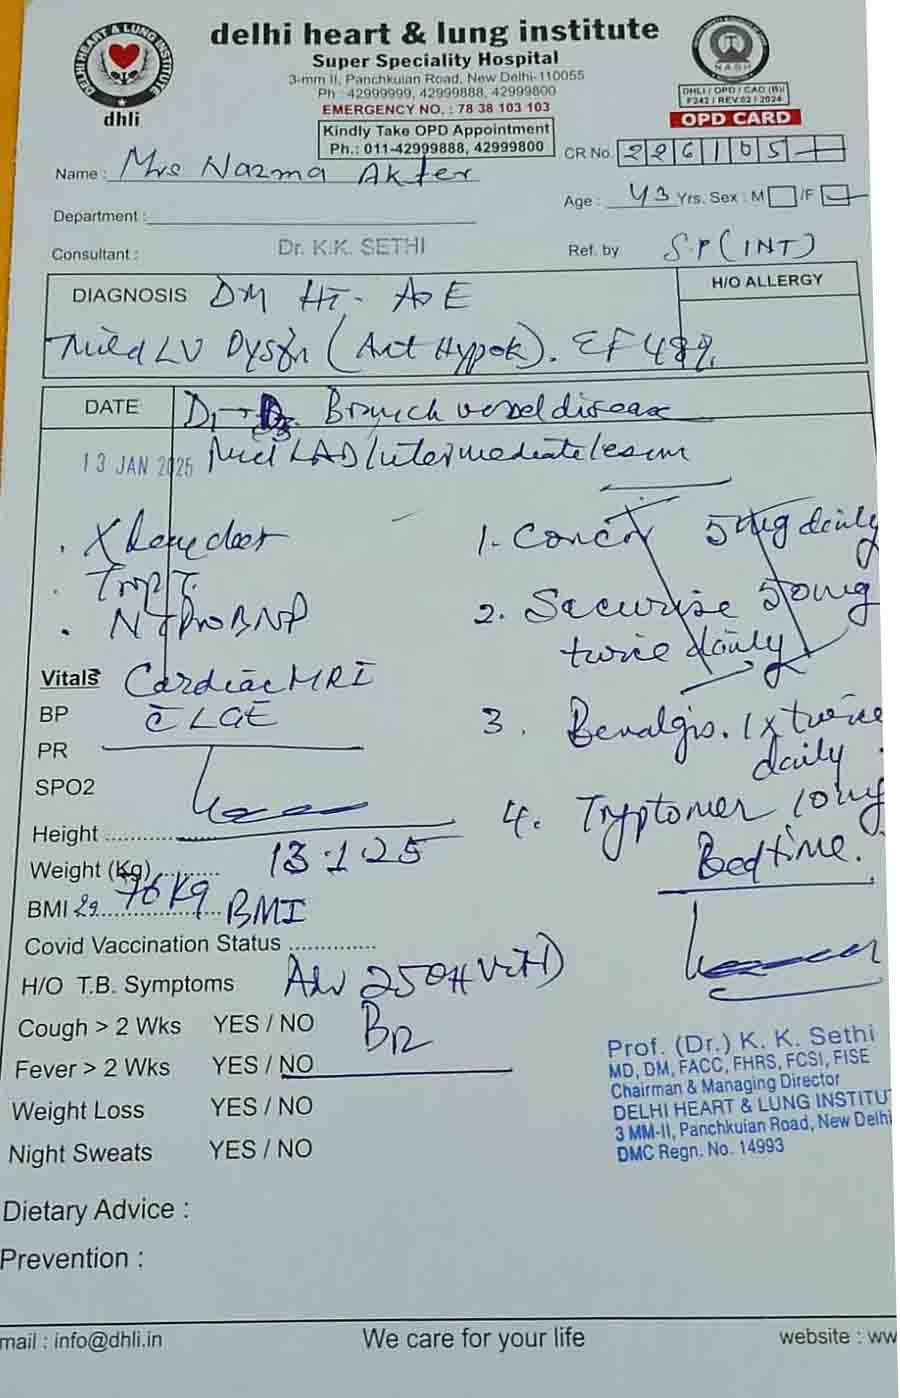 delhi heart & lung institute
Super Speciality Hospital
3-mm II, Panchkuian Road, New Delhi-110055
Ph : 42999999, 42999888, 42999800
EMERGENCY NO. : 78 38 103 103
Kindly Take OPD Appointment
Ph.: 011-42999888, 42999800
DELHI HEART & LUNG INSTITUTE
dhli
NABH
DHLI / OPD / CAD (B)/
F242 / REV.02 / 2024
OPD CARD
CR No. 226105
Name : Mrs Nazma Akter
Age : 43 Yrs. Sex : M /F
Department :
Consultant : Dr. K.K. SETHI
Ref. by S.P (INT)
DIAGNOSIS DM HT - AOE
H/O ALLERGY
Mild LV Dysfn (Ant Hypok). EF 48%
DATE D1 - Branch vessel disease
13 JAN 2025 Mid LAD/intermediate lesion
Trop T.
NT Pro BNP
Cardiac MRI
c̄ LGE
1. Concor 5mg daily
2. 50mg
twice daily
3. Benalgis. 1x twice
daily
4. Tryptomer 10mg
Bedtime.
Vitals
BP
PR
SPO2
Height
13.1.25
Weight (Kg) 76 Kg
BMI 29 BMI
Covid Vaccination Status
H/O T.B. Symptoms
250H Vit D
B12
Cough > 2 Wks YES / NO
Fever > 2 Wks YES / NO
Weight Loss YES / NO
Night Sweats YES / NO
Prof. (Dr.) K. K. Sethi
MD, DM, FACC, FHRS, FCSI, FISE
Chairman & Managing Director
DELHI HEART & LUNG INSTITU
3 MM-II, Panchkuian Road, New Delhi
DMC Regn. No. 14993
Dietary Advice :
Prevention :
mail : info@dhli.in We care for your life website : ww